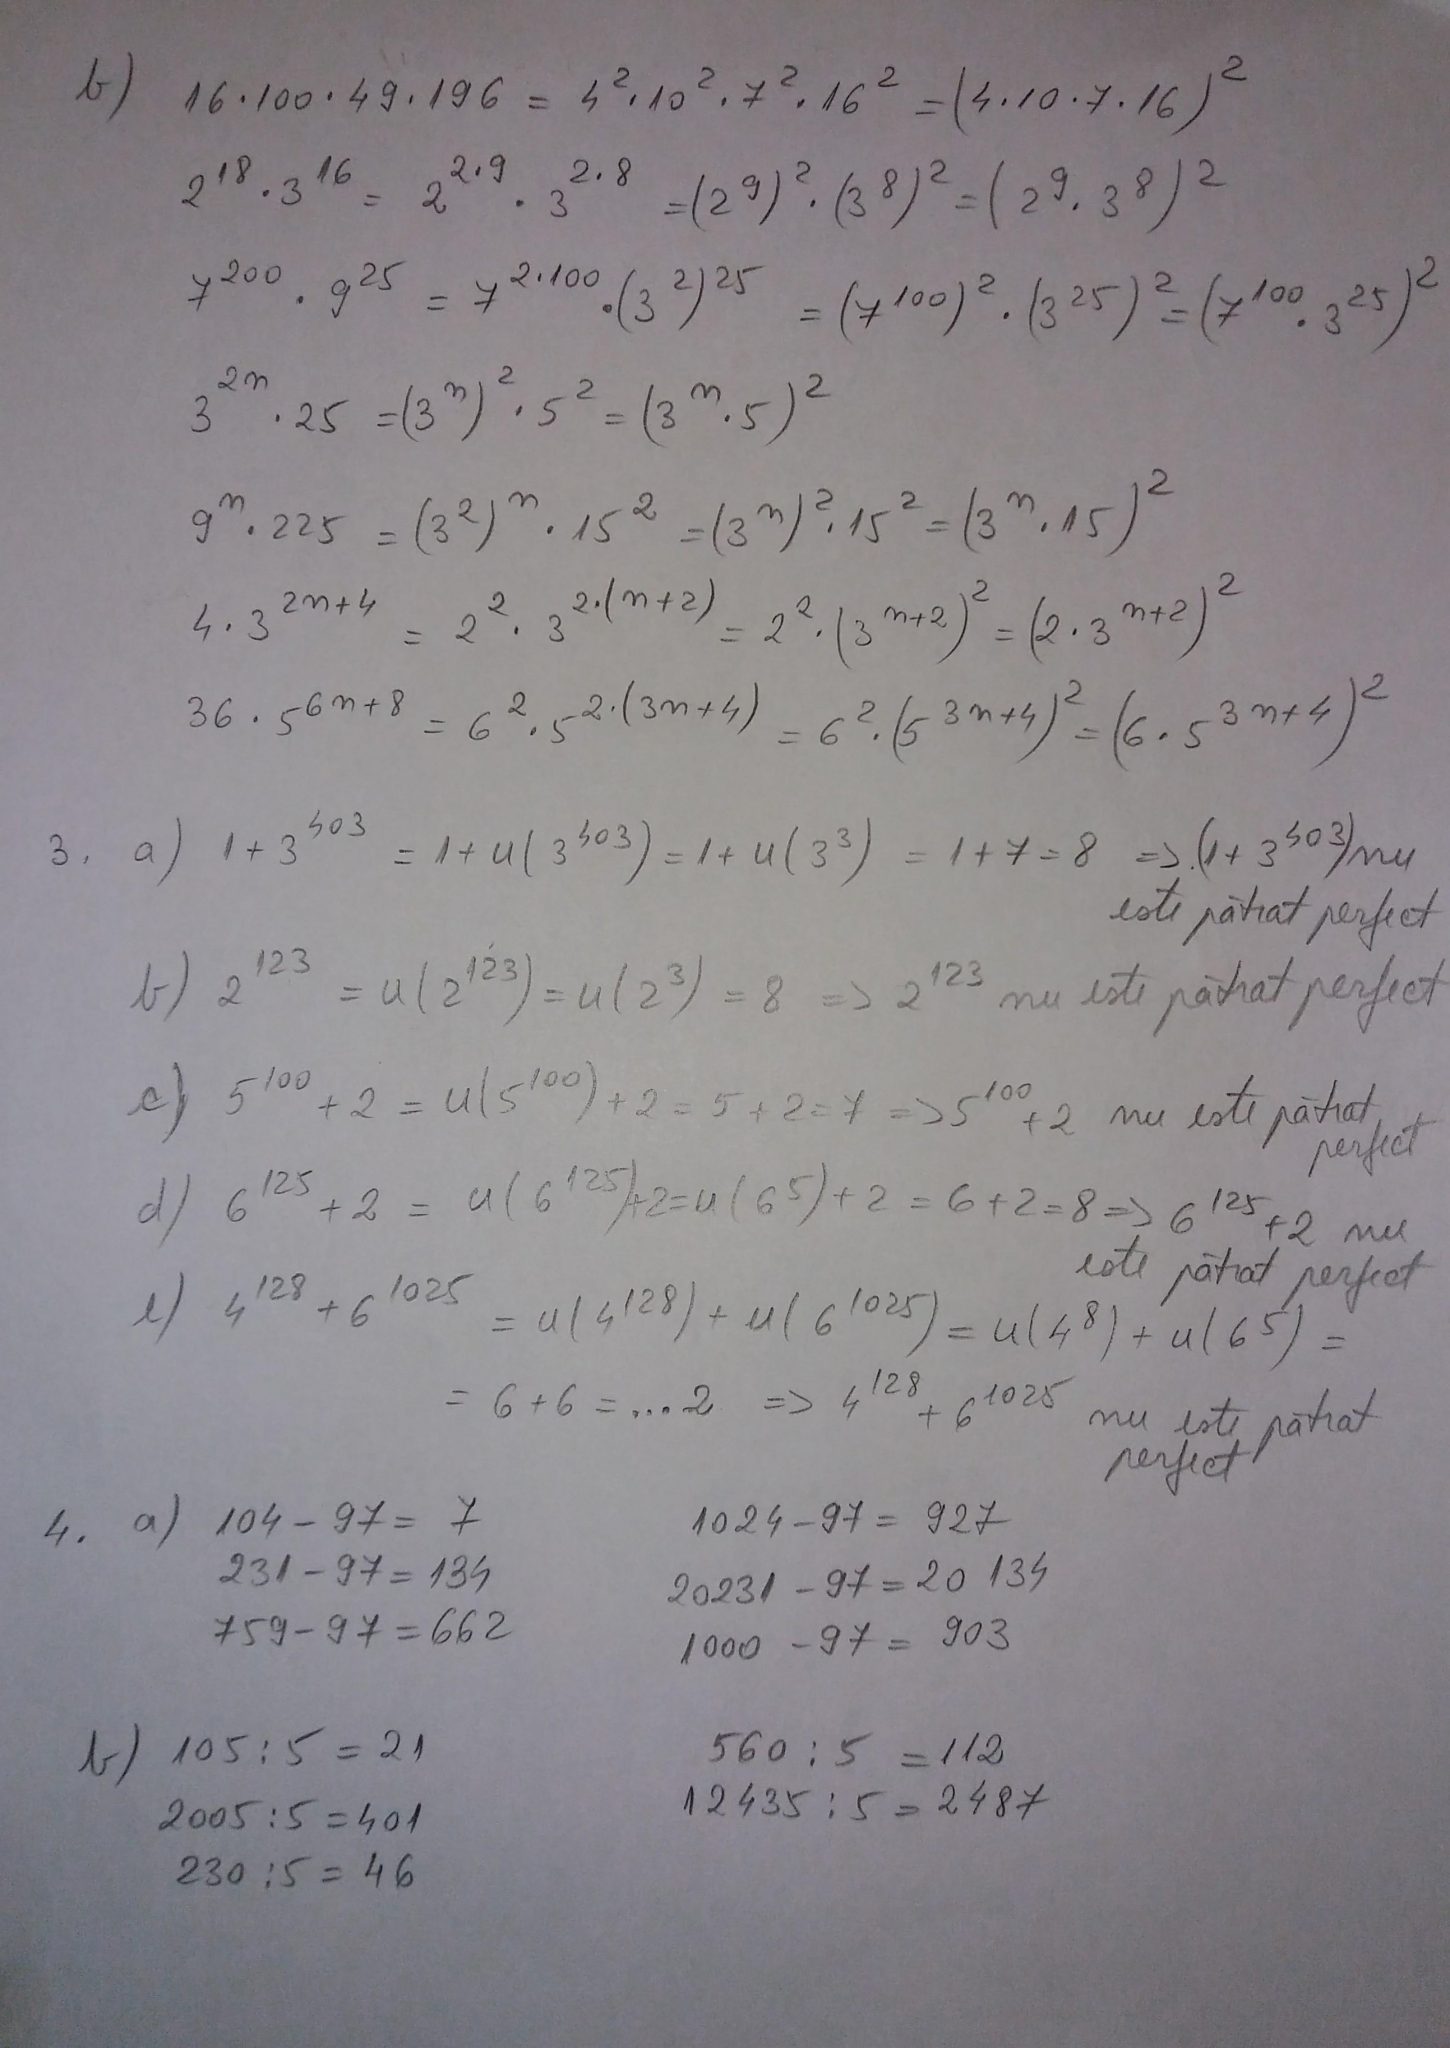 b) 16·100·49·196 = 4²·10²·7²·16² = (4·10·7·16)²
2¹⁸·3¹⁶ = 2^{2·9}·3^{2·8} = (2⁹)²·(3⁸)² = (2⁹·3⁸)²
7²⁰⁰·9²⁵ = 7^{2·100}·(3²)²⁵ = (7¹⁰⁰)²·(3²⁵)² = (7¹⁰⁰·3²⁵)²
3^{2n}·25 = (3ⁿ)²·5² = (3ⁿ·5)²
9ⁿ·225 = (3²)ⁿ·15² = (3ⁿ)²·15² = (3ⁿ·15)²
4·3^{2n+4} = 2²·3^{2·(n+2)} = 2²·(3^{n+2})² = (2·3^{n+2})²
36·5^{6n+8} = 6²·5^{2·(3n+4)} = 6²·(5^{3n+4})² = (6·5^{3n+4})²
3. a) 1+3⁴⁰³ = 1+u(3⁴⁰³) = 1+u(3³) = 1+7=8 => (1+3⁴⁰³) nu
este pătrat perfect
b) 2¹²³ = u(2¹²³) = u(2³) = 8 => 2¹²³ nu este pătrat perfect
c) 5¹⁰⁰+2 = u(5¹⁰⁰)+2 = 5+2=7 => 5¹⁰⁰+2 nu este pătrat
perfect
d) 6¹²⁵+2 = u(6¹²⁵)+2=u(6⁵)+2 = 6+2=8 => 6¹²⁵+2 nu
este pătrat perfect
e) 4¹²⁸+6¹⁰²⁵ = u(4¹²⁸)+u(6¹⁰²⁵) = u(4⁸)+u(6⁵) =
= 6+6 = ...2 => 4¹²⁸+6¹⁰²⁵ nu este pătrat
perfect
4. a) 104-97= 7 1024-97= 927
231-97=134 20231-97=20 134
759-97=662 1000-97= 903
b) 105:5=21 560:5 =112
2005:5=401 12435:5=2487
230:5=46